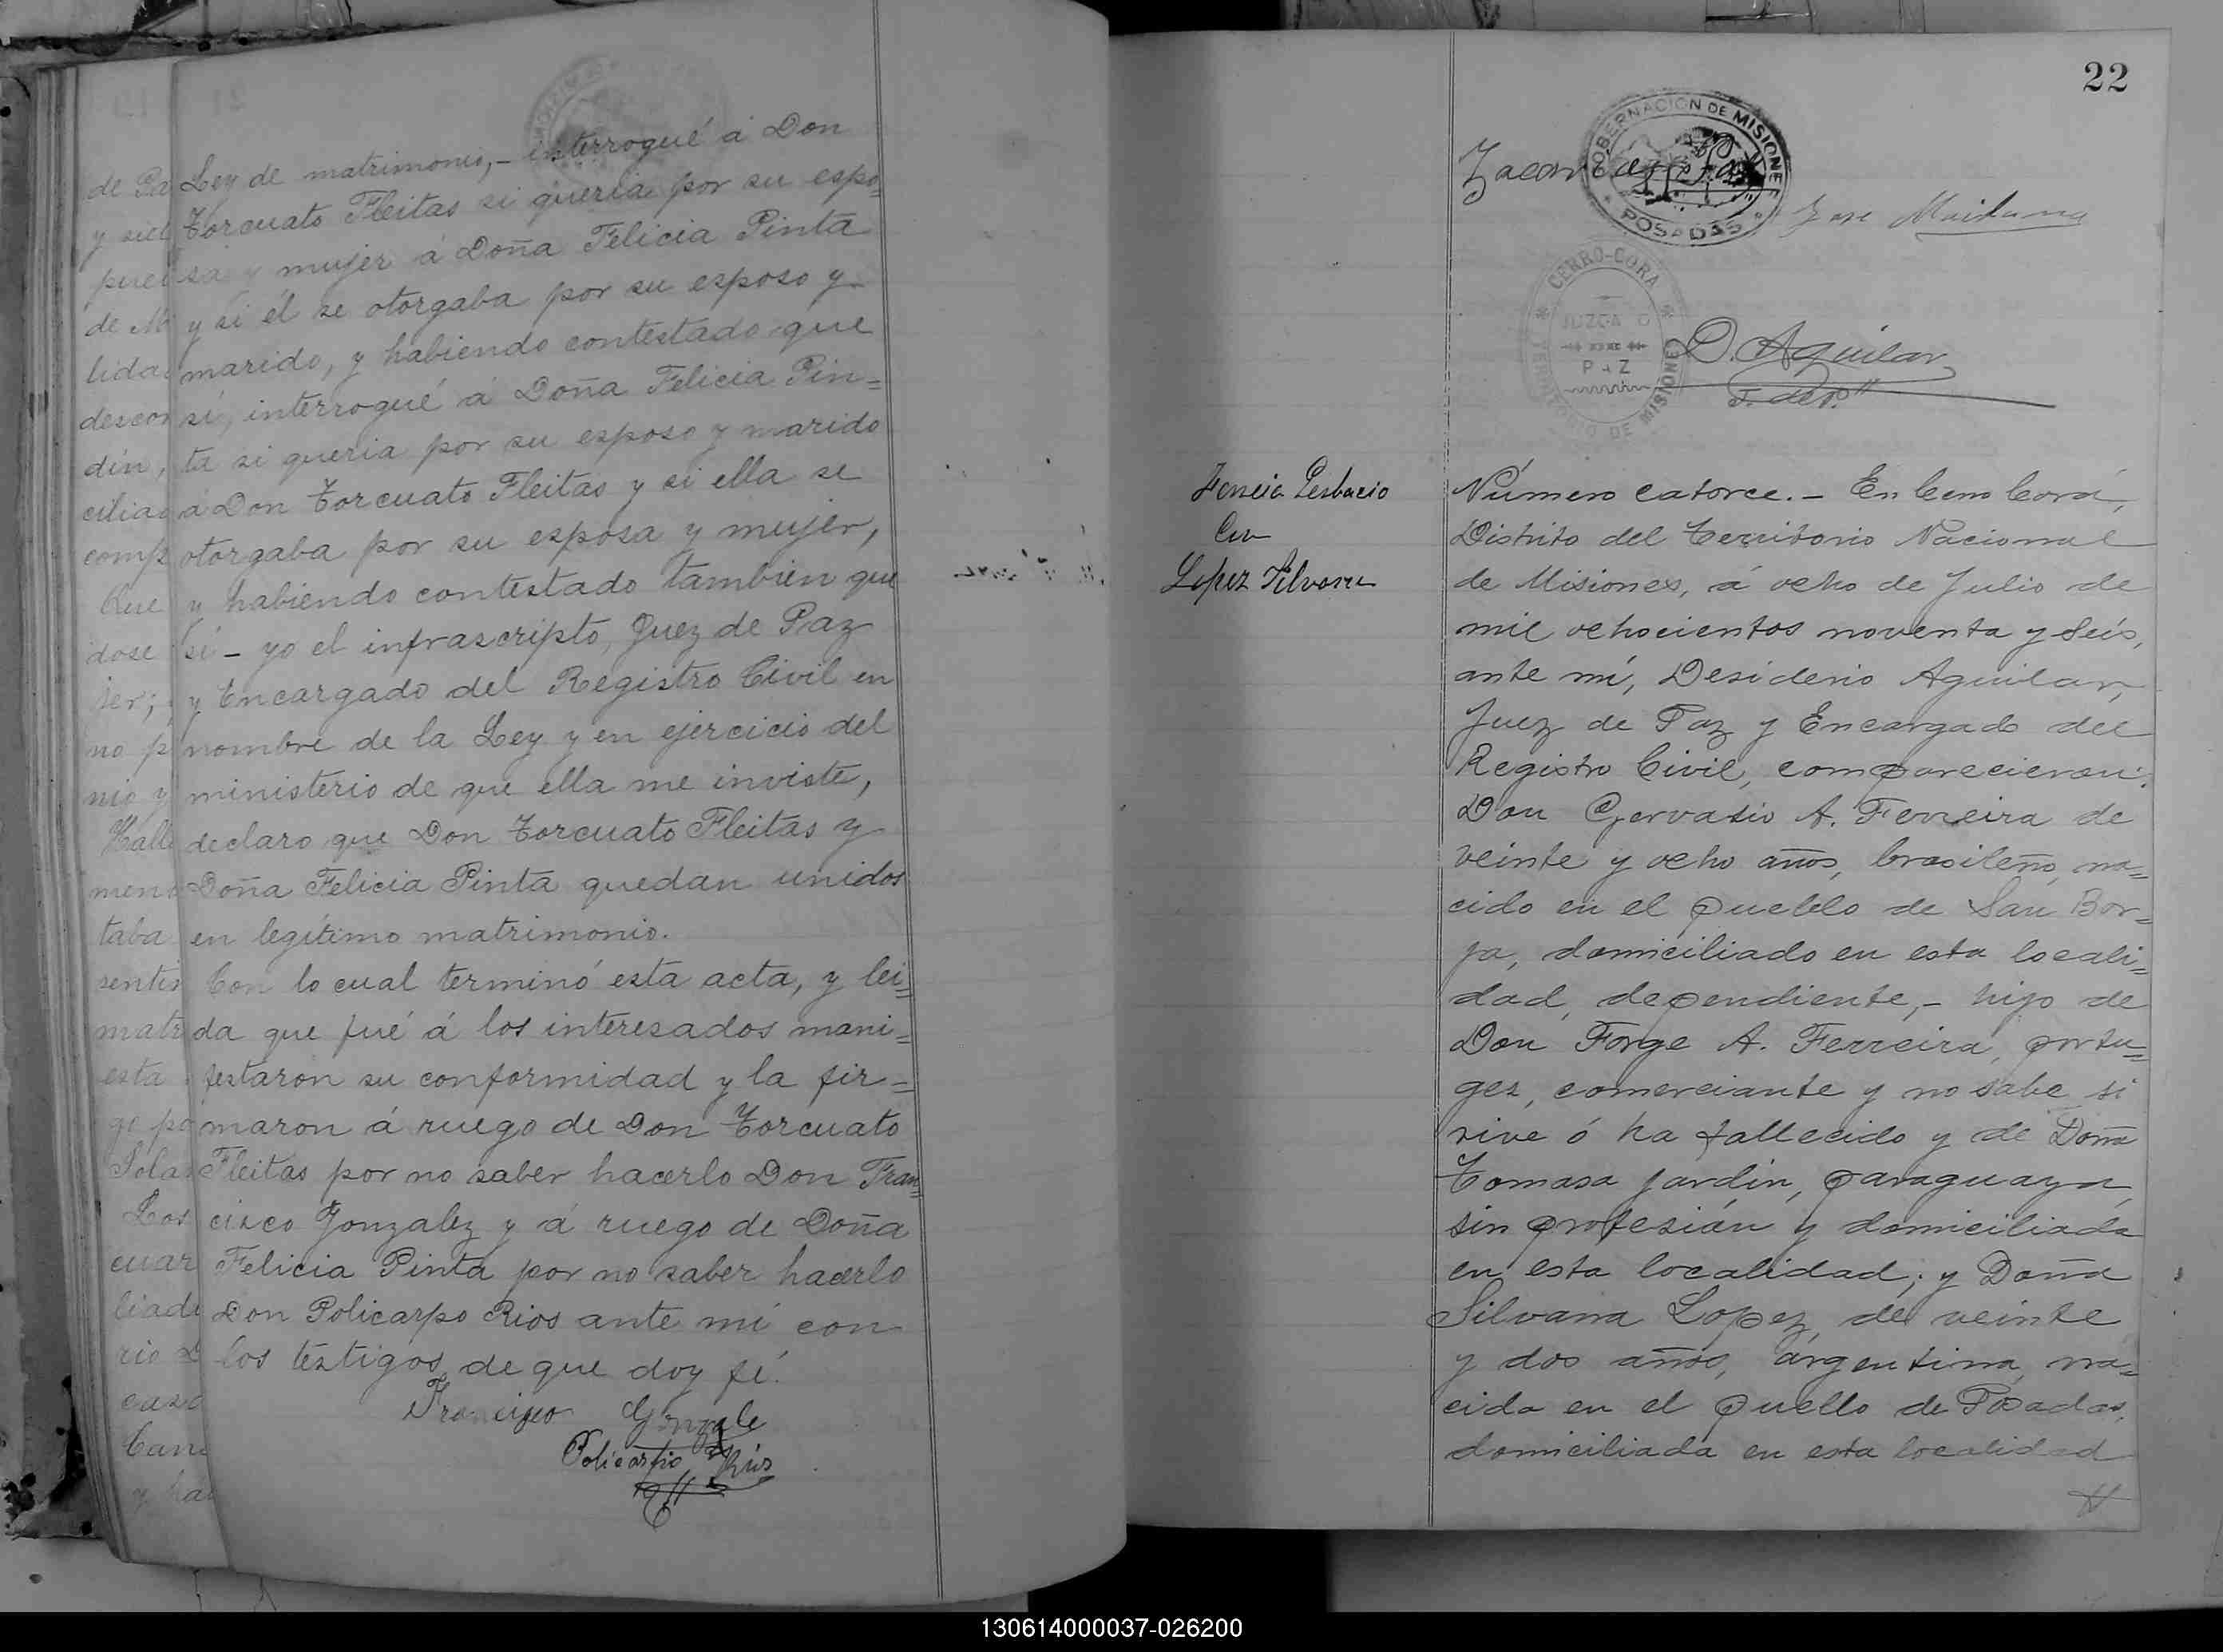 de Pa
y siet
de M
lida
descon
din,
cilia
comp
Que
dose
ser;
no p
nio y
Halle
meno
taba
sentis
matr
esta
go po
Sola
Los
cuar
liade
rio D
caso
y ha
Ley de matrimonio, - interrogué á Don
Torcuato Fleitas si queria por su espo=
sa y mujer á Doña Felicia Pinta
y si él se otorgaba por su esposo y
marido, y habiendo contestado que
sí, interrogué á Doña Felicia Pin=
ta si queria por su esposo y marido
á Don Torcuato Fleitas y si ella se
otorgaba por su esposa y mujer,
y habiendo contestado tambien que
sí - yo el infrascripto, Juez de Paz
y Encargado del Registro Civil en
nombre de la Ley y en ejercicio del
ministerio de que ella me inviste,
declaro que Don Torcuato Fleitas y
Doña Felicia Pinta quedan unidos
en legítimo matrimonio.
Con lo cual terminó esta acta, y lei=
da que fué á los interesados mani=
festaron su conformidad y la fir=
maron á ruego de Don Torcuato
Fleitas por no saber hacerlo Don Fran=
cisco Gonzalez y á ruego de Doña
Felicia Pinta por no saber hacerlo
Don Policarpo Rios ante mí con
los téstigos de que doy fé.
Francisco Gonzale
Policarpio Rios
22
GOBERNACION DE MISIONES
POSADAS
Zacarias
Jose Maidana
CERRO-CORA
JUZGADO
PAZ
TERRITORIO DE MISIONES
D. Aguilar
J. de P.
Con
Lopez Silvana
Número catorce. - En Cerro Corá,
Distrito del Territorio Nacional
de Misiones, á ocho de Julio de
mil ochocientos noventa y seis,
ante mí, Desiderio Aguilar,
Juez de Paz y Encargado del
Registro Civil, comparecieron:
Don Gervasio A. Ferreira de
veinte y ocho años, brasileño, na=
cido en el pueblo de San Bor=
ja, domiciliado en esta locali=
dad, dependiente, - hijo de
Don Jorge A. Ferreira, portu=
gez, comerciante y no sabe si
vive ó ha fallecido y de Doña
Tomasa Jardin, paraguaya,
sin profesión y domiciliada
en esta localidad; y Doña
Silvana Lopez, de veinte
y dos años, argentina, na=
cida en el pueblo de Posadas,
domiciliada en esta localidad
130614000037-026200